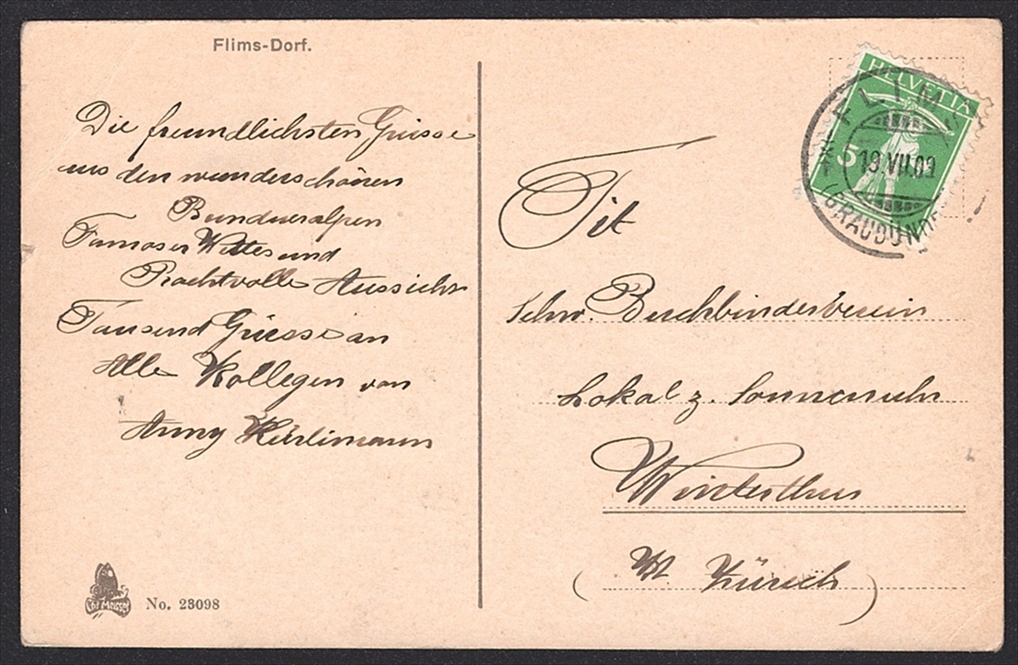 Flims-Dorf.
Die freundlichsten Grüsse
aus den wunderschönen
Bündneralpen
Famoses Wetter und
Prachtvolle Aussicht
Tausend Grüsse an
Alle Kollegen von
Anny Hürlimann
Ed. Meisser
No. 23098
HELVETIA
5
FLIMS
19.VII.09
(GRAUBÜND
Tit
Schw. Buchbinderverein
Lokal z. Sonnenuhr
Winterthur
(Kt. Zürich)